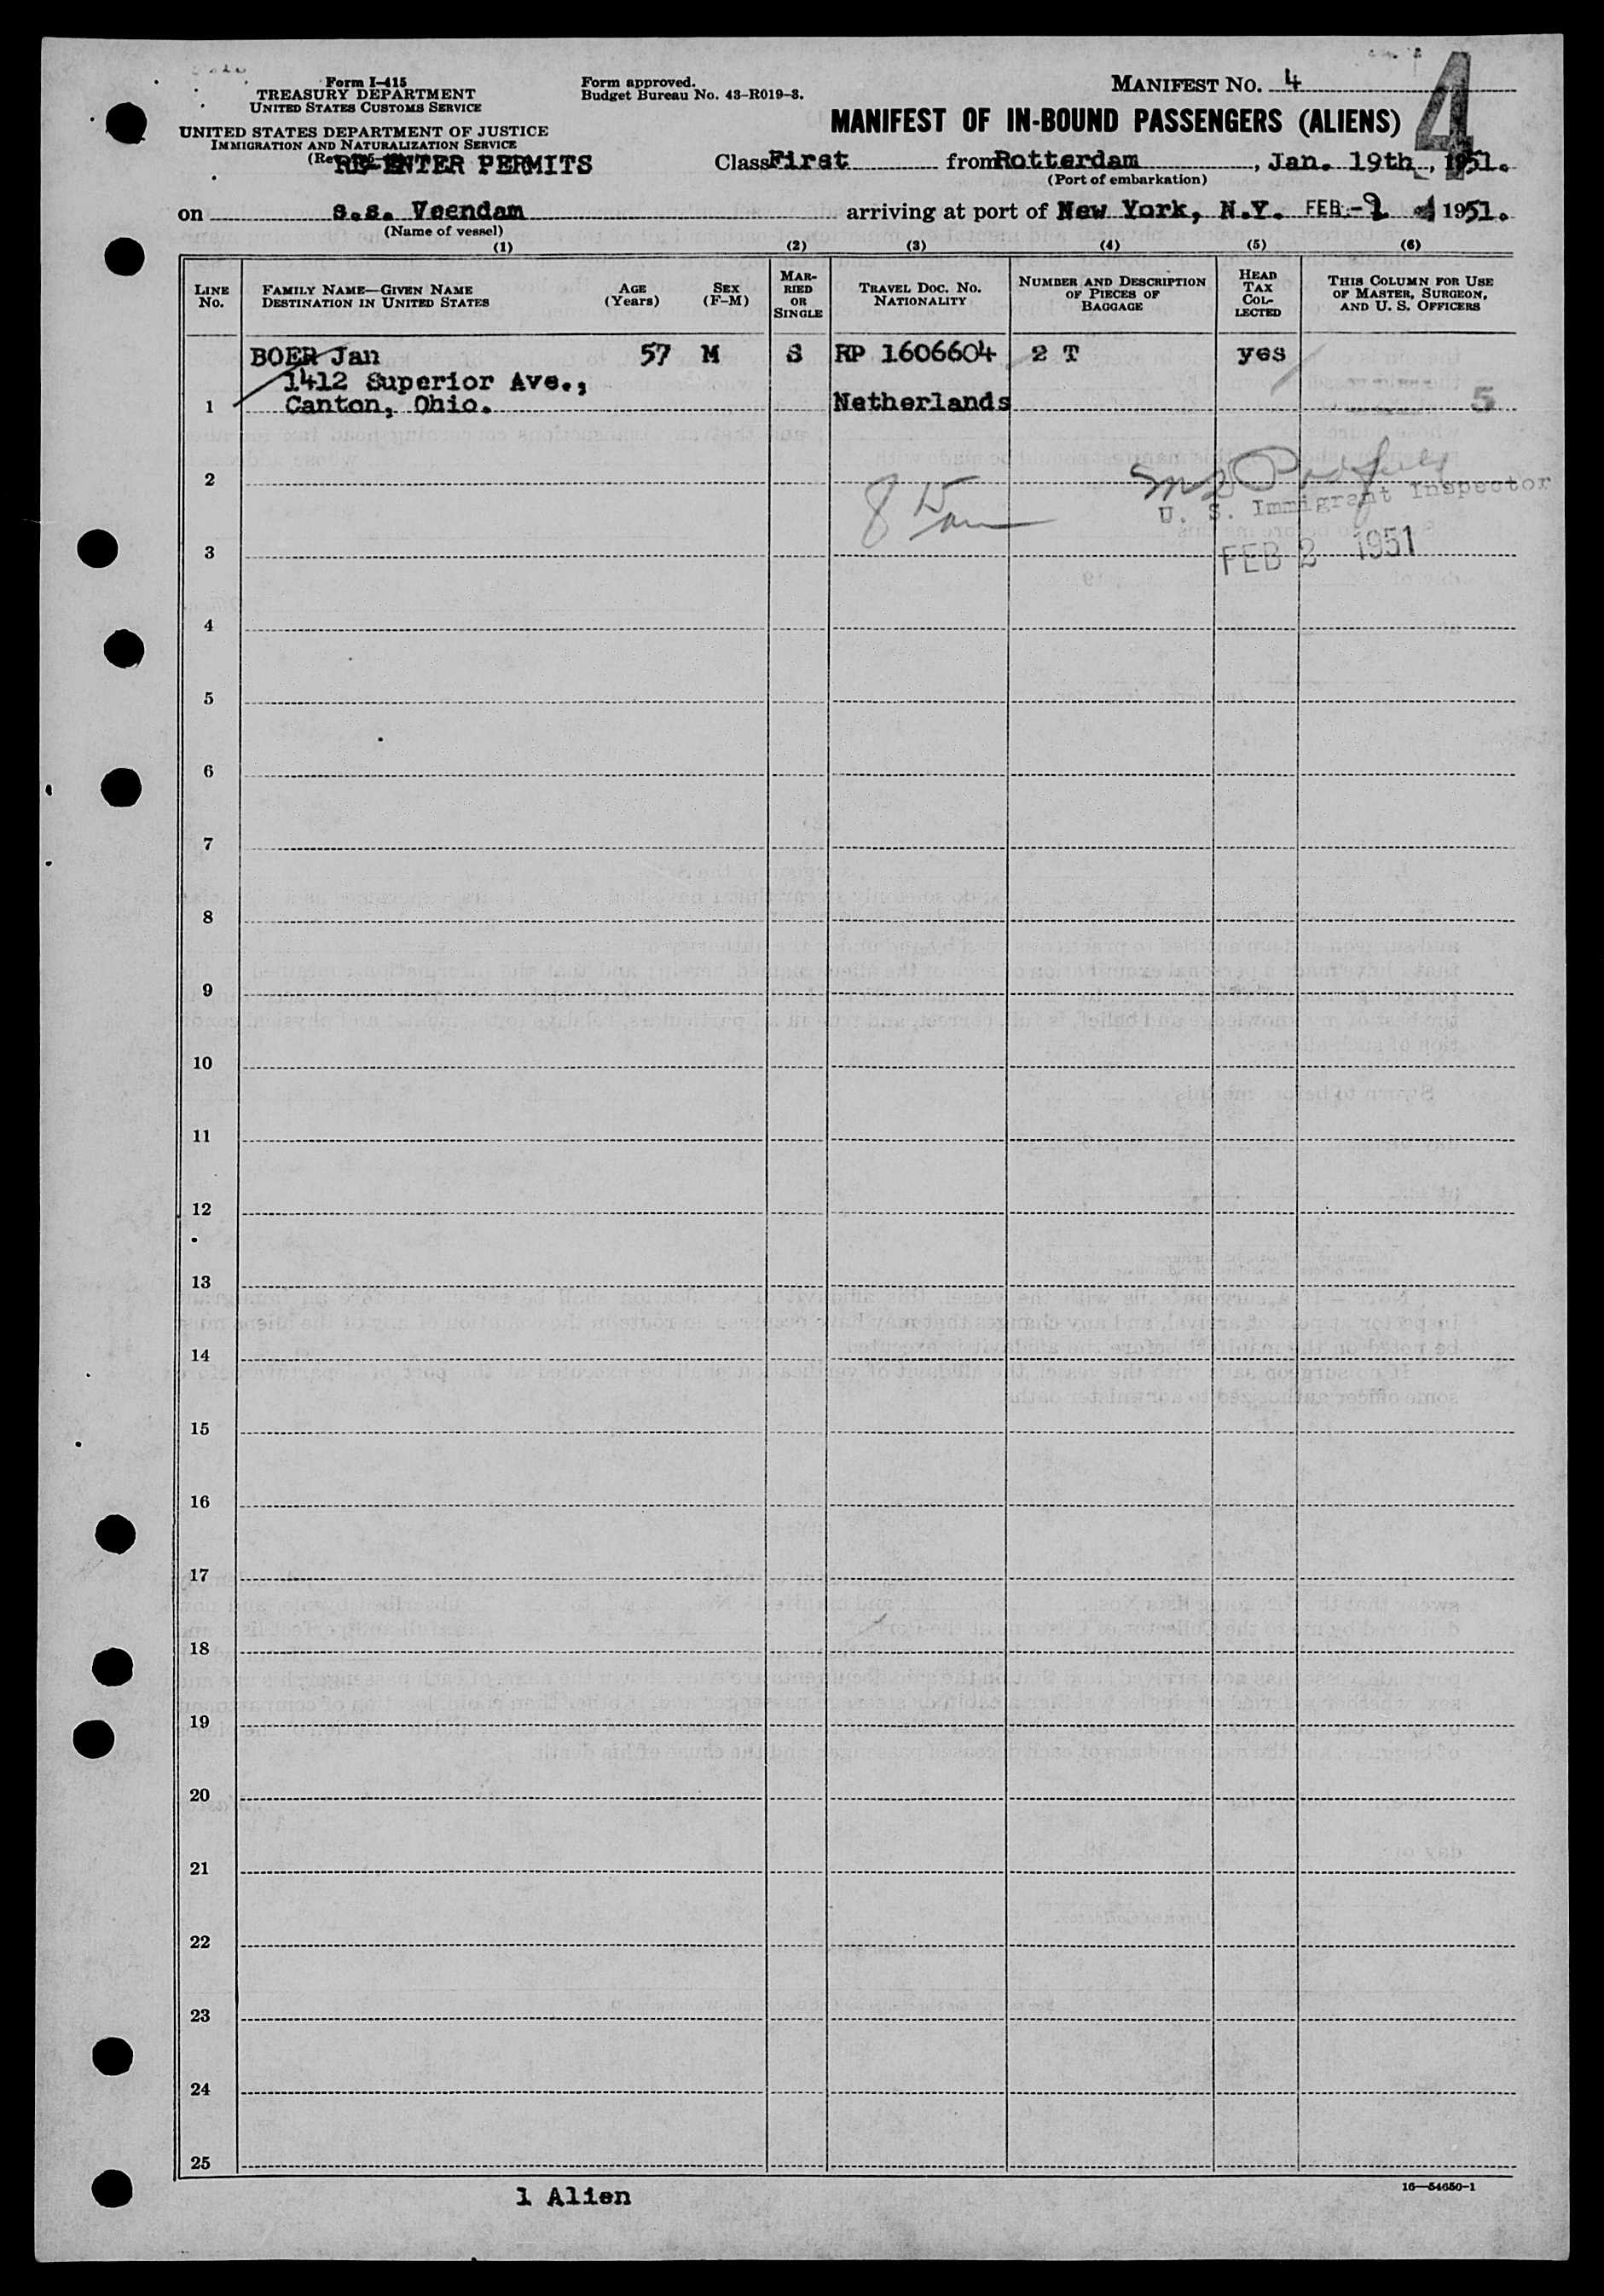 Form I-415
TREASURY DEPARTMENT
UNITED STATES CUSTOMS SERVICE
UNITED STATES DEPARTMENT OF JUSTICE
IMMIGRATION AND NATURALIZATION SERVICE
RE-ENTER PERMITS
Form approved.
Budget Bureau No. 43-R019-3.
MANIFEST NO. 4
4
MANIFEST OF IN-BOUND PASSENGERS (ALIENS)
Class First from Rotterdam, Jan. 19th, 1951.
(Port of embarkation)
on s.s. Veendam arriving at port of New York, N.Y. FEB - 2 1951.
(Name of vessel)
(1) (2) (3) (4) (5) (6)
LINE No. FAMILY NAME—GIVEN NAME DESTINATION IN UNITED STATES AGE (Years) SEX (F-M) MARRIED OR SINGLE TRAVEL DOC. NO. NATIONALITY NUMBER AND DESCRIPTION OF PIECES OF BAGGAGE HEAD TAX COLLECTED THIS COLUMN FOR USE OF MASTER, SURGEON, AND U. S. OFFICERS
BOER Jan 57 M S RP 1606604 2 T yes
1412 Superior Ave.,
1 Canton, Ohio. Netherlands 5
2
U. S. Immigrant Inspector
3 FEB 2 1951
4
5
6
7
8
9
10
11
12
13
14
15
16
17
18
19
20
21
22
23
24
25
1 Alien
16—54650-1